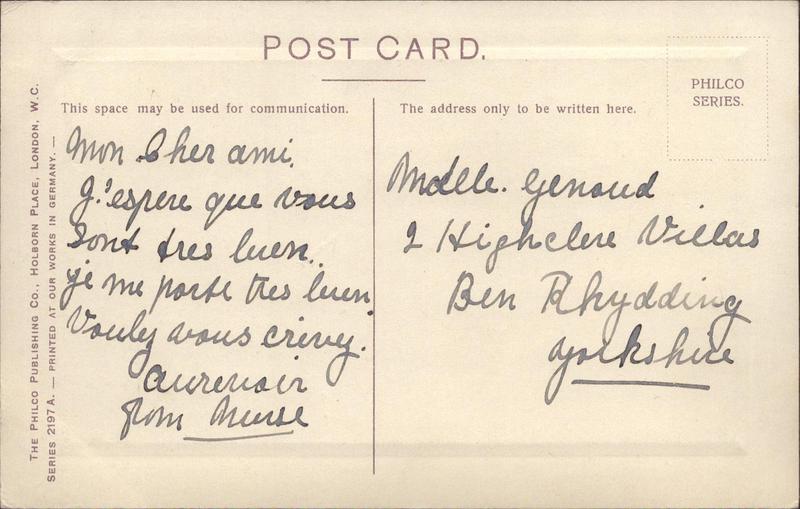 POST CARD.
This space may be used for communication.
The address only to be written here.
PHILCO
SERIES.
Mon Cher ami.
J'espere que vous
sont tres bien.
je me porte tres bien
Vouly vous crivy.
aurevoir
from Nurse
Mdlle. Genoud
2 Highclere Villas
Ben Rhydding
Yorkshire
THE PHILCO PUBLISHING CO., HOLBORN PLACE, LONDON, W.C.
SERIES 2197 A. — PRINTED AT OUR WORKS IN GERMANY. —